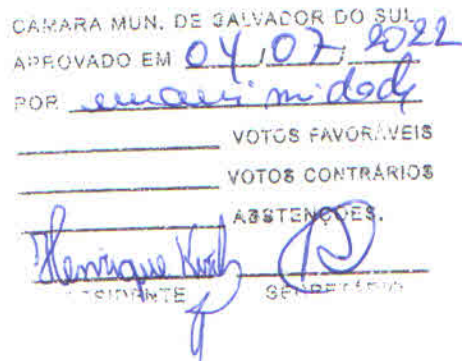 CÂMARA MUN. DE SALVADOR DO SUL
APROVADO EM 04 / 07 / 2022
POR unanimidade
VOTOS FAVORÁVEIS
VOTOS CONTRÁRIOS
ABSTENÇÕES.
Henrique
PRESIDENTE SECRETÁRIO